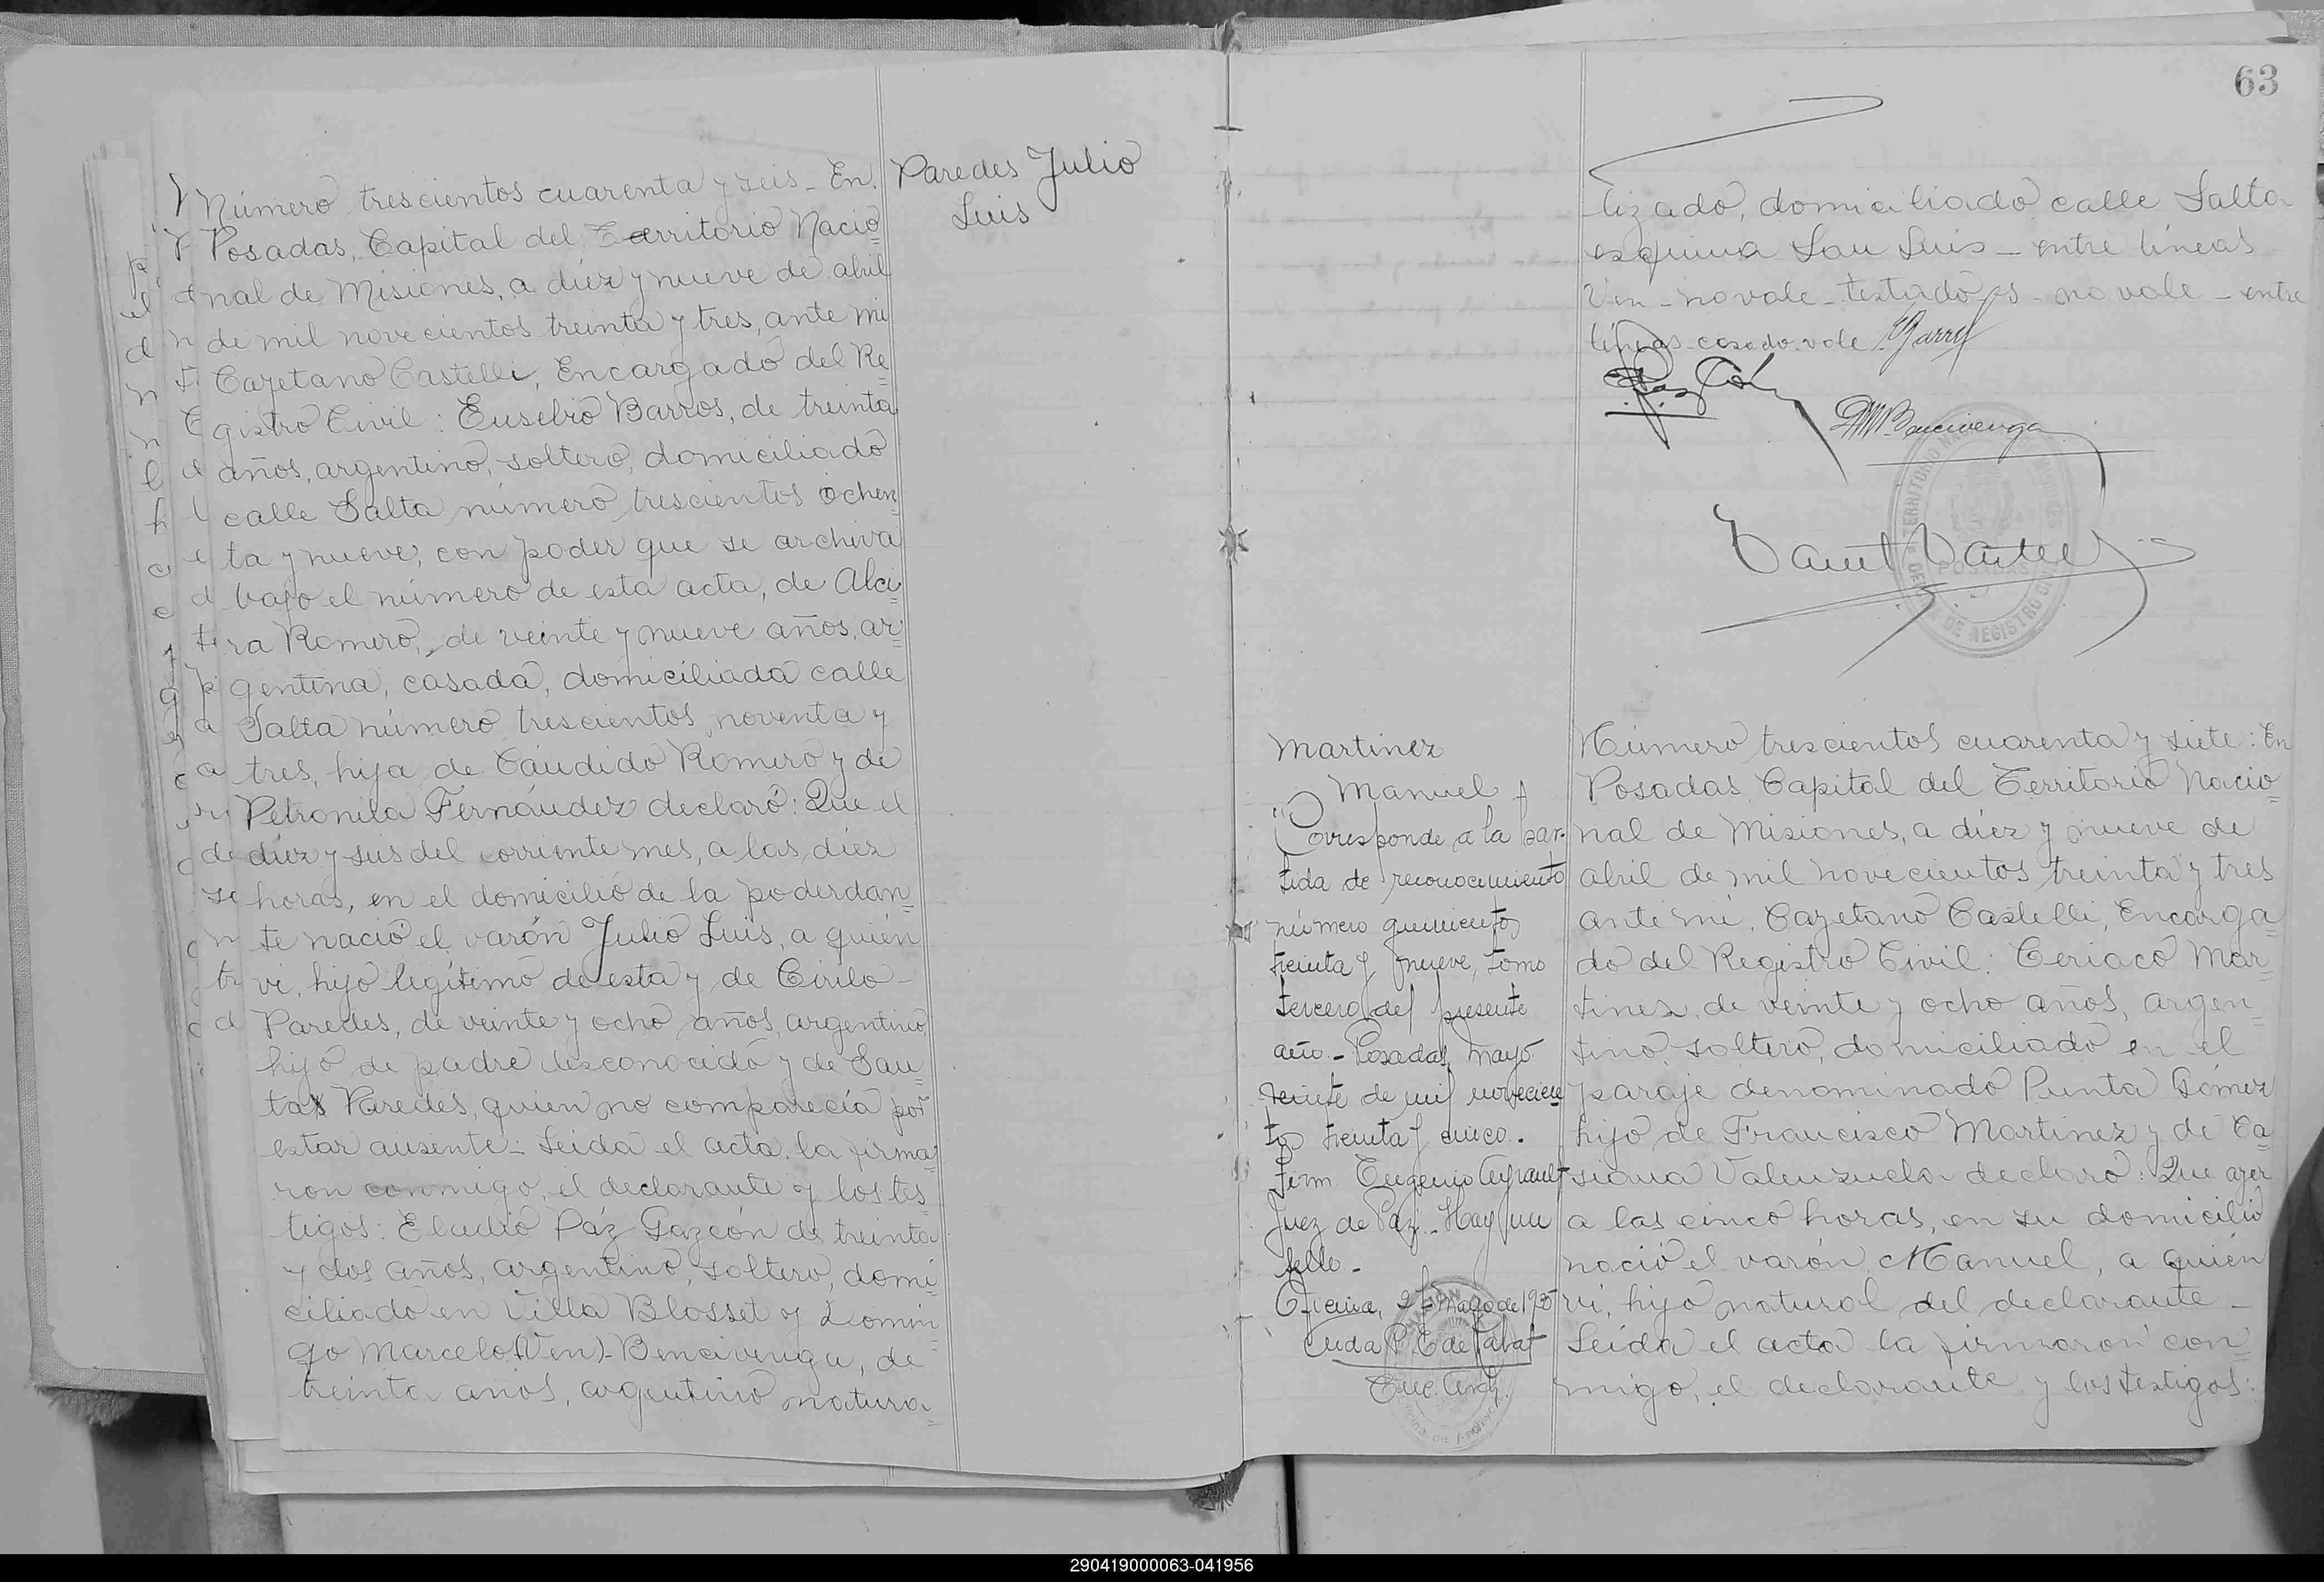 Número trescientos cuarenta y seis - En
Posadas, Capital del Territorio Nacio=
nal de Misiones, a diez y nueve de abril
de mil novecientos treinta y tres, ante mi
Cayetano Castelli, Encargado del Re=
gistro Civil: Eusebio Barros, de treinta
años, argentino, soltero, domiciliado
calle Salta número trescientos ochen=
ta y nueve, con poder que se archiva
bajo el número de esta acta, de Alci=
ra Romero, de veinte y nueve años, ar=
gentina, casada, domiciliada calle
Salta número trescientos noventa y
tres, hija de Cándido Romero y de
Petronila Fernández declaró: Que el
diez y seis del corriente mes, a las diez
horas, en el domicilio de la poderdan=
te nació el varón Julio Luis, a quién
vi, hijo legítimo de esta y de Cirilo -
Paredes, de veinte y ocho años, argentino,
hijo de padre desconocido y de San=
tas Paredes, quien no comparecía por
estar ausente - Leida el acta, la firma=
ron conmigo, el declarante y los tes=
tigos: Eladio Páz Gazcón de treinta
y dos años, argentino, soltero, domi=
ciliado en Villa Blosset y Domin=
go Marcelo (Ven) - Bencivenga, de
treinta años, argentino natura=
Paredes Julio
Luis
63
lizado, domiciliado calle Salta
esquina San Luis - entre líneas
Ven - no vale - testado - s - no vale - entre
líneas - casado - vale
DM Bencivenga
Martinez
Manuel
"Corresponde a la par-
tida de reconocimiento
número quinientos
treinta y nueve, tomo
tercero del presente
año - Posadas, mayo
veinte de mil novecien
tos treinta y cinco.
Firm. Eugenio
Juez de Paz - Hay un
sello -
Oficina, Mayo de 1935
Número trescientos cuarenta y siete: En
Posadas Capital del Territorio Nacio=
nal de Misiones, a diez y nueve de
abril de mil novecientos treinta y tres
ante mi, Cayetano Castelli, Encarga=
do del Registro Civil: Ceriaco Mar=
tinez, de veinte y ocho años, argen=
tino, soltero, domiciliado en el
paraje denominado Punta Gómez
hijo de Francisco Martinez y de Ca=
siana Valenzuela declaró: Que ayer
a las cinco horas, en su domicilio
nació el varón Manuel, a quién
vi, hijo natural del declarante -
Leida el acta la firmaron con=
migo, el declarante y los testigos:
290419000063-041956